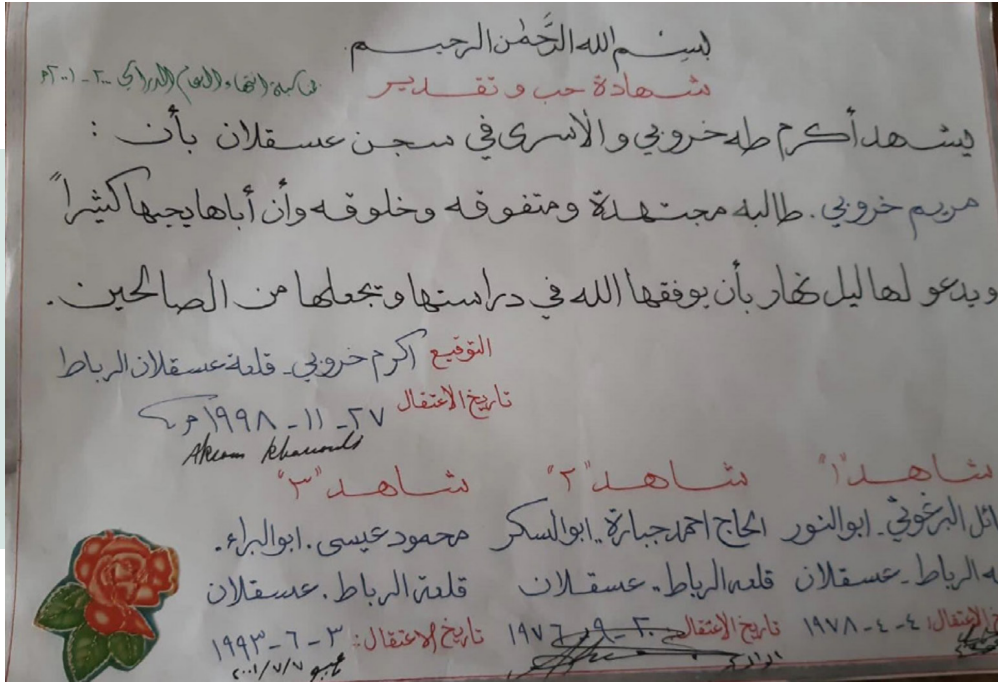 بسم الله الرَّحمٰن الرحيم
شهادة حب وتقدير
بمناسبة انتهاء العام الدراسي ٢٠٠٠ - ٢٠٠١م
يشهد أكرم طه خروبي والأسرى في سجن عسقلان بأن :
مريم خروبي. طالبه مجتهدة ومتفوقه وخلوقه وأن أباها يحبها كثيراً
ويدعو لها ليل نهار بأن يوفقها الله في دراستها ويجعلها من الصالحين.
التوقيع اكرم خروبي - قلعة عسقلان الرباط
تاريخ الاعتقال ٢٧ - ١١ - ١٩٩٨م
Akram Kharoubi
شاهد "١" شاهد "٢" شاهد "٣"
ائل البرغوثي - ابو النور الحاج احمد جبارة - ابو السكر محمود عيسى . ابو البراء .
ه الرباط - عسقلان قلعة الرباط - عسقلان قلعة الرباط . عسقلان
الاعتقال: ٤ - ٤ - ١٩٧٨ تاريخ الاعتقال ٢٠ - ٩ - ١٩٧٦ تاريخ الاعتقال: ٣ - ٦ - ١٩٩٣
٢٠٠١/٧/٧